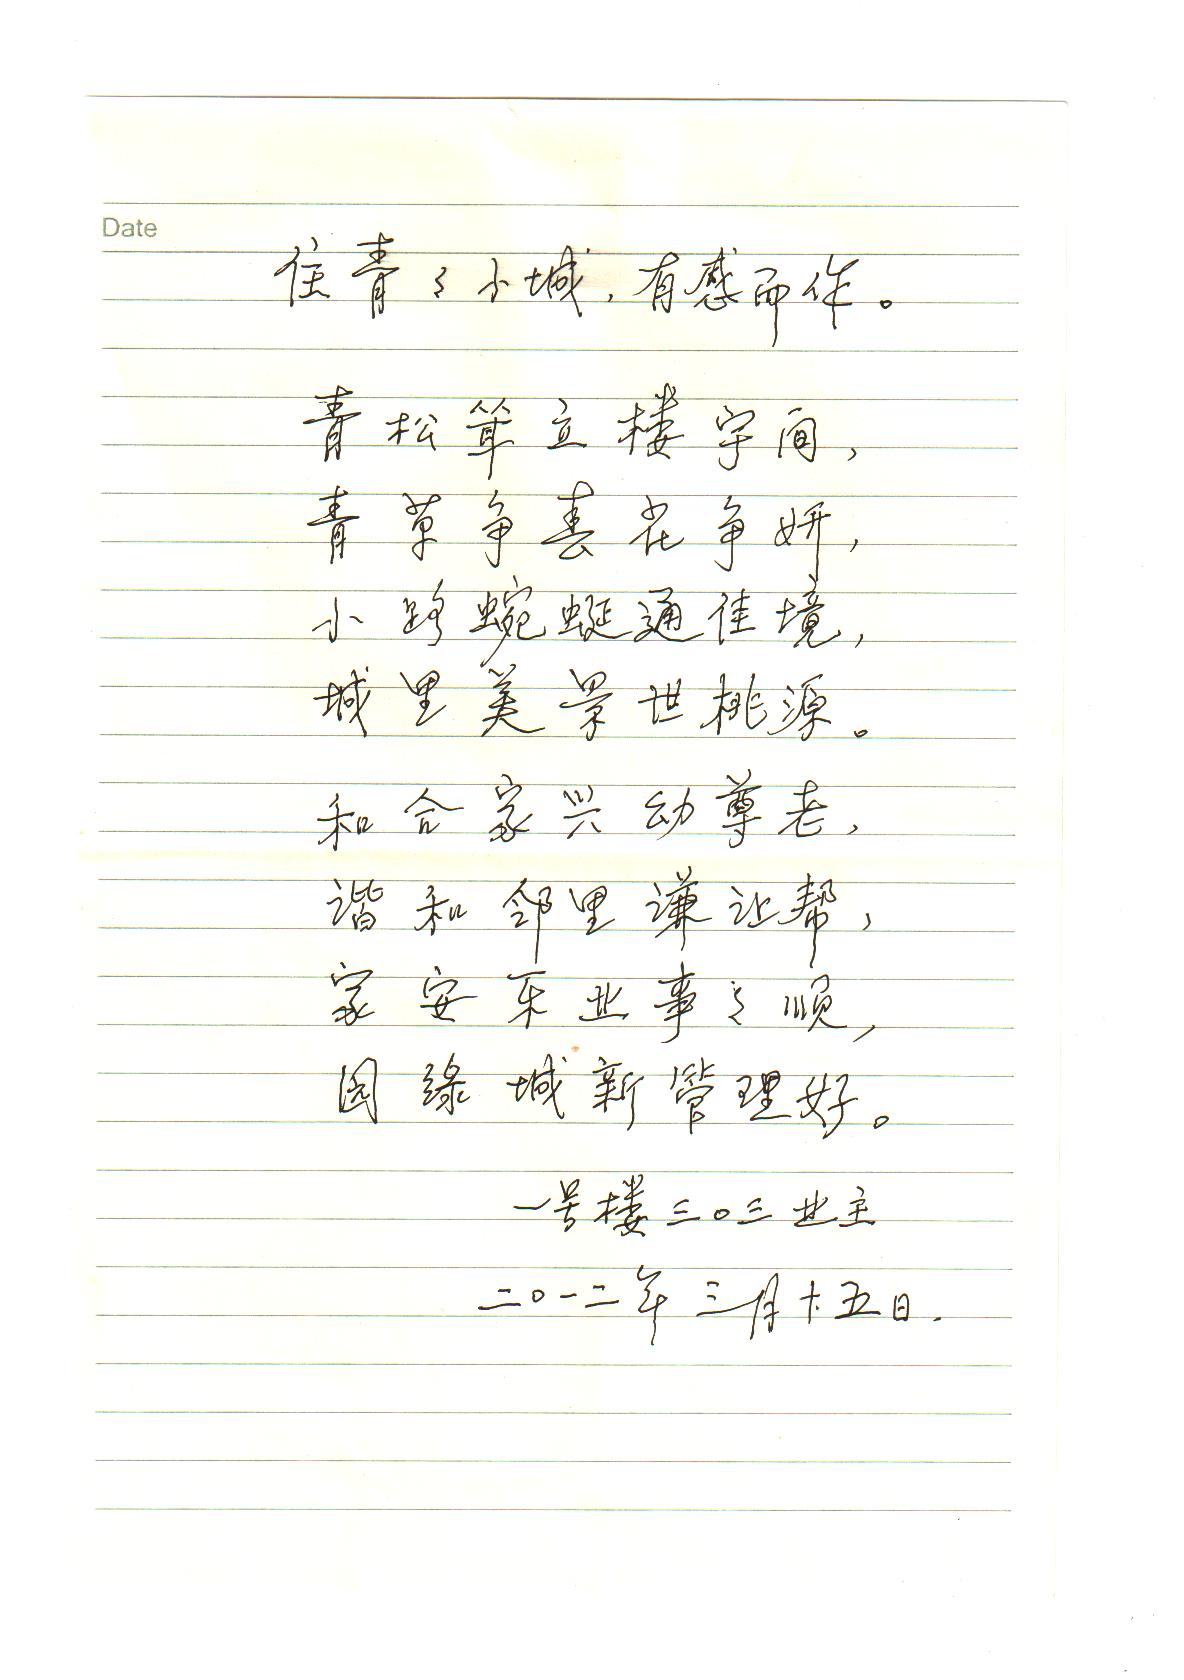 Date
住青々小城，有感而作。
青松耸立楼宇间，
青草争春花争妍，
小路蜿蜒通佳境，
城里美景世桃源。
和合家兴幼尊老，
谐和邻里谦让帮，
家安乐业事々顺，
园绿城新管理好。
一号楼三〇三业主
二〇一二年三月十五日.